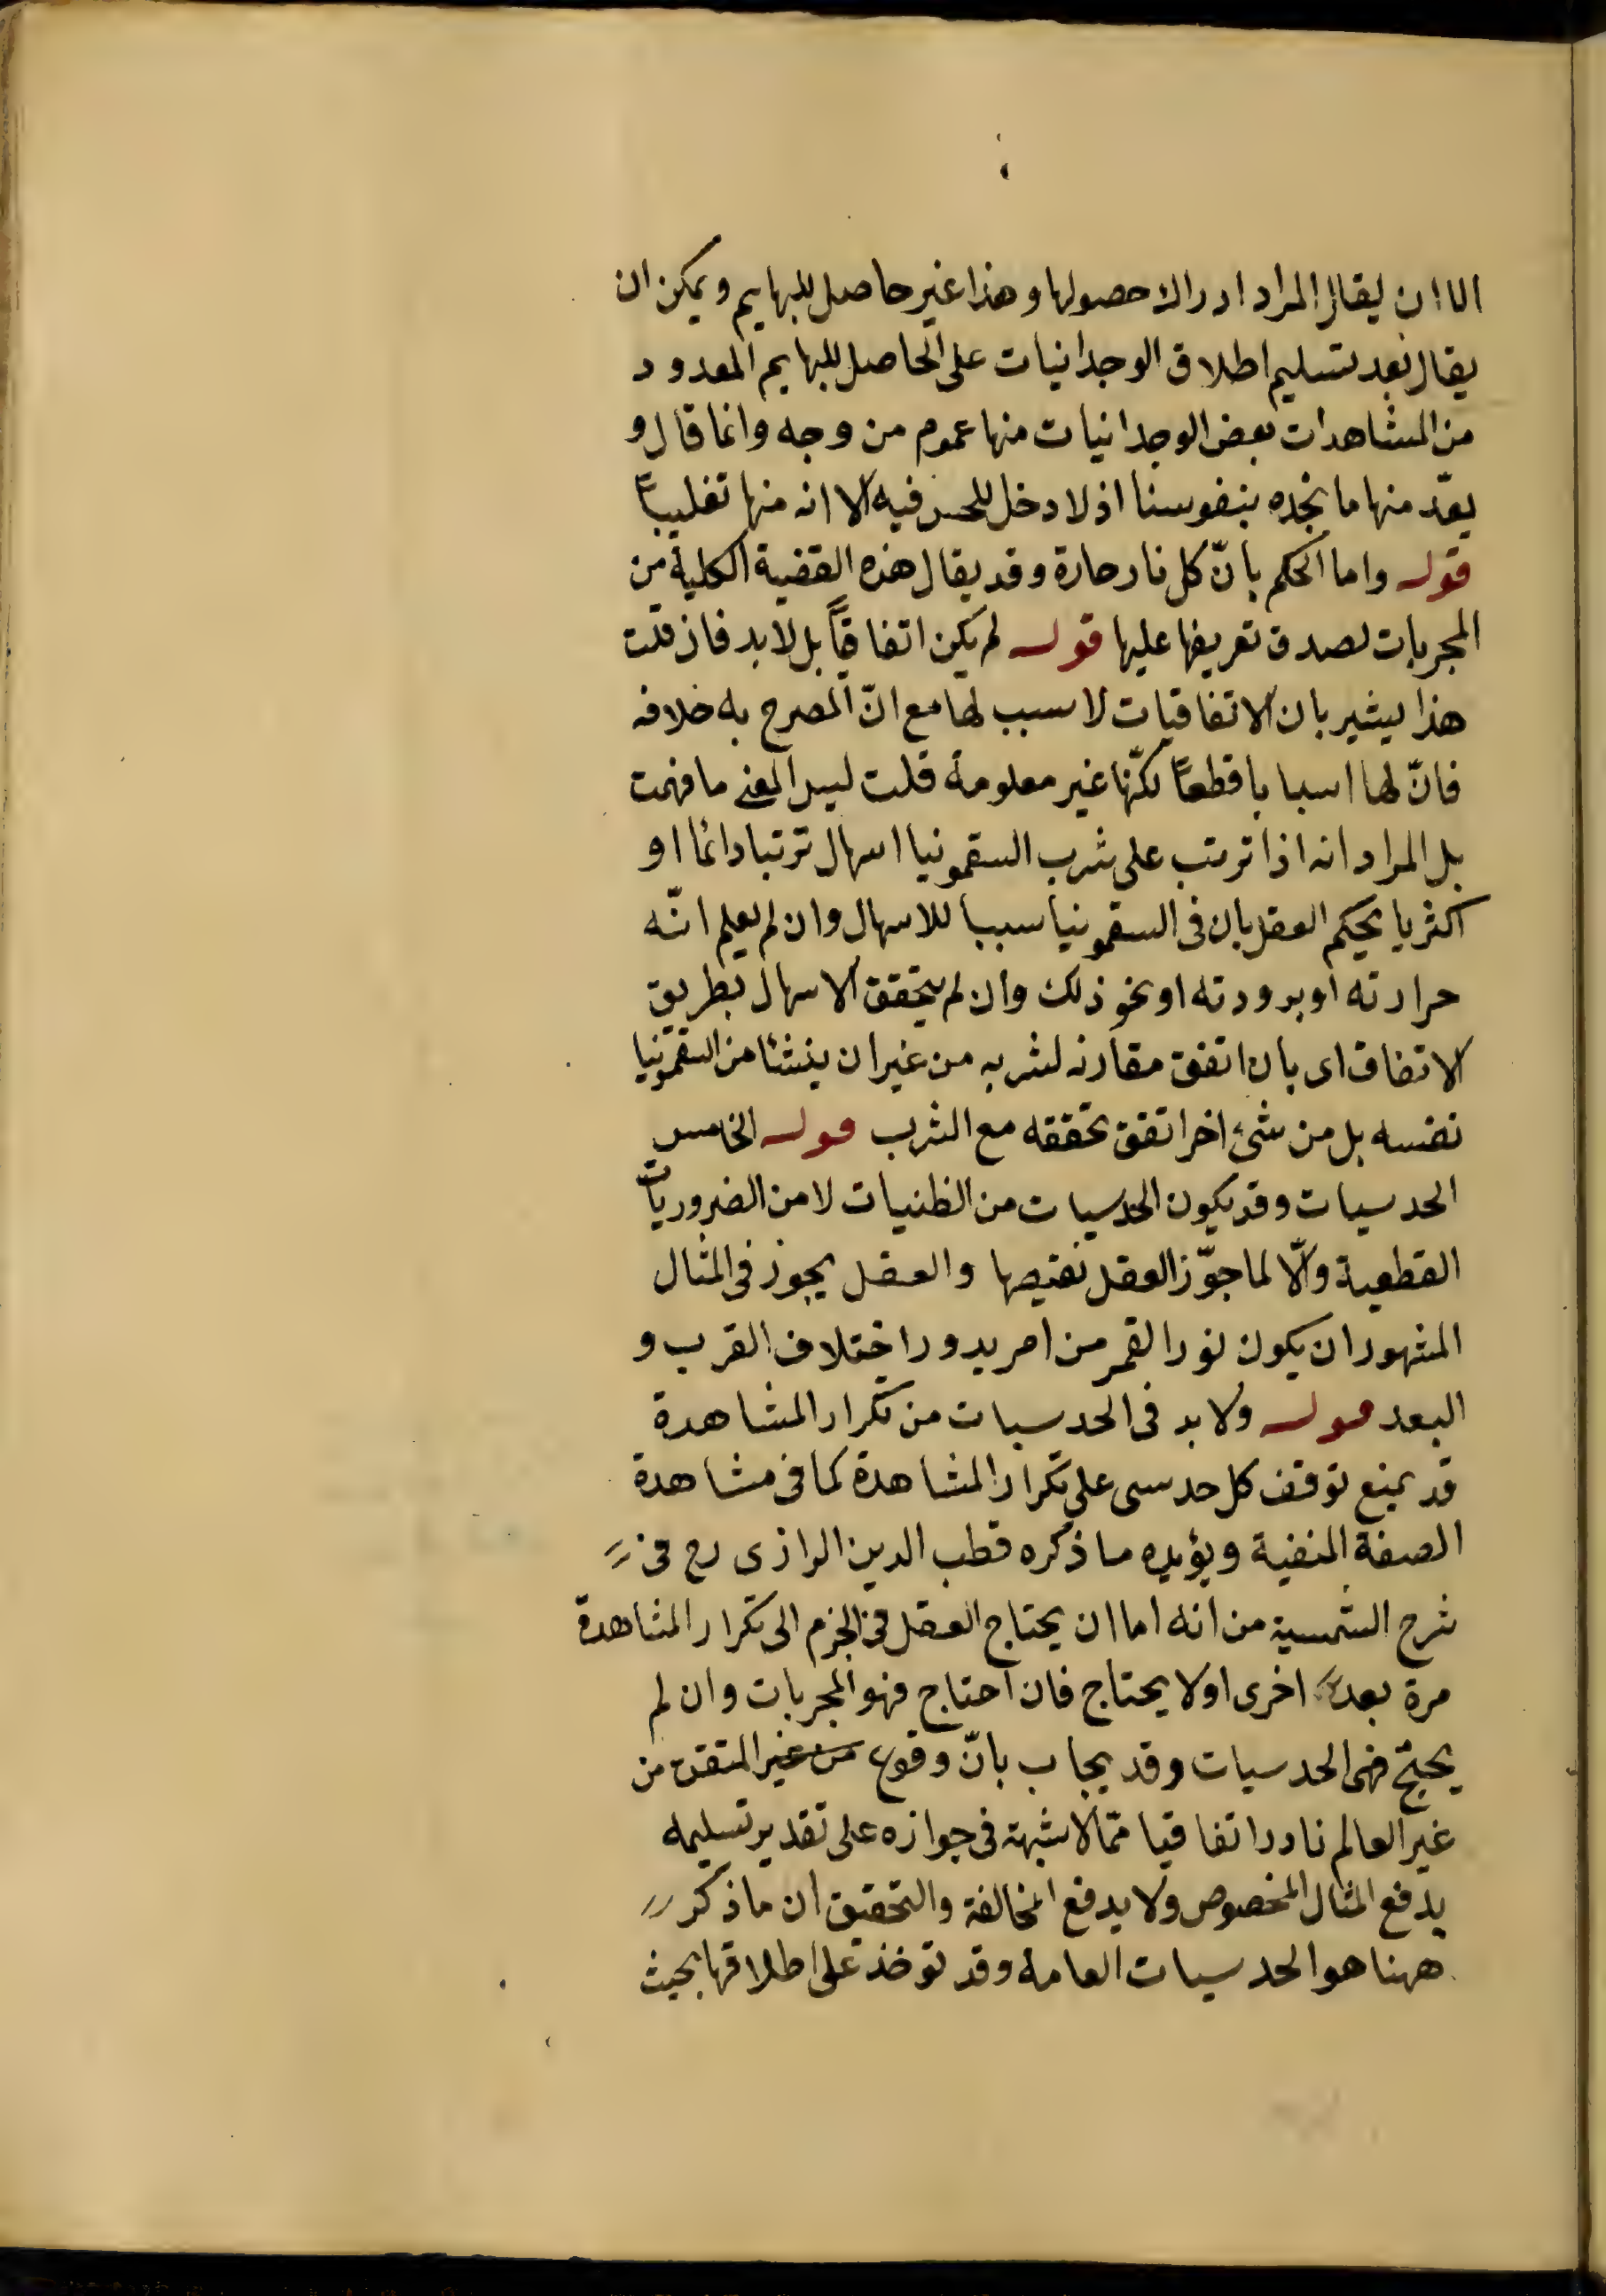 الا ان يقال المراد ادراك حصولها وهذا غير حاصل للبهايم ويمكن ان
يقال بعد تسليم اطلاق الوجدانيات على الحاصل للبهايم المعدود
من المشاهدات بعض الوجدانيات منها عموم من وجه وانما قال و
يعدّ منها ما نجده بنفوسنا اذ لا دخل للحس فيه الا انه منها تغليباً
قوله واما الحكم بانّ كل نار حارة وقد يقال هذه القضية الكلية من
المجربات لصدق تعريفها عليها قوله لم يكن اتفاقياً بل لابد فان قلت
هذا يشير بان الاتفاقيات لا سبب لها مع انّ المصرح به خلافه
فانّ لها اسبابا قطعاً لكنّها غير معلومة قلت ليس المعنى ما فهمت
بل المراد انه اذا ترتب على شرب السقمونيا اسهال ترتبا دائما او
اكثريا يحكم العقل بان فى السقمونيا سببا للاسهال وان لم يعلم انّه
حرارته او برودته او نحو ذلك وان لم يتحقق الاسهال بطريق
الاتفاق اى بان اتفق مقارنه لشربه من غير ان ينشئا من السقمونيا
نفسه بل من شئ اخر اتفق تحققه مع الشرب قوله الخامس
الحدسيات وقد يكون الحدسيات من الظنيات لا من الضروريات
القطعية والّا لما جوّز العقل نقيضها والعقل يجوز فى المثال
المشهور ان يكون نور القمر من امر يدور اختلاف القرب و
البعد قوله ولا بد فى الحدسيات من تكرار المشاهدة
قد يمنع توقف كل حدسى على تكرار المشاهدة كما فى مشاهدة
الصفة المنفية ويؤيده ما ذكره قطب الدين الرازى رح فى
شرح الشمسية من انه اما ان يحتاج العقل فى الجزم الى تكرار المشاهدة
مرة بعد اخرى او لا يحتاج فان احتاج فهو المجربات وان لم
يحتج فهى الحدسيات وقد يجاب بانّ وقوع من غير المتقن من
غير العالم نادرا اتفاقيا ممّا لا شبهة فى جوازه على تقدير تسليمه
يدفع المثال المخصوص ولا يدفع المخالفة والتحقيق ان ما ذكر
ههنا هو الحدسيات العامة وقد توخذ على اطلاقها بحيث